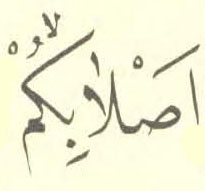 اَصْلاٰبِكُمْۙ